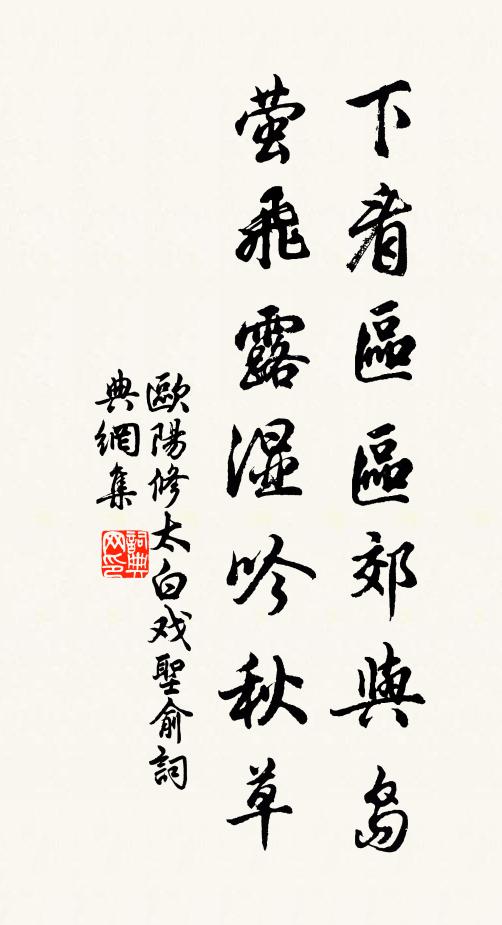 下看區區郊與島
萤飛露湿吟秋草
歐陽修太白戏聖俞詞
典網集
詞典网印